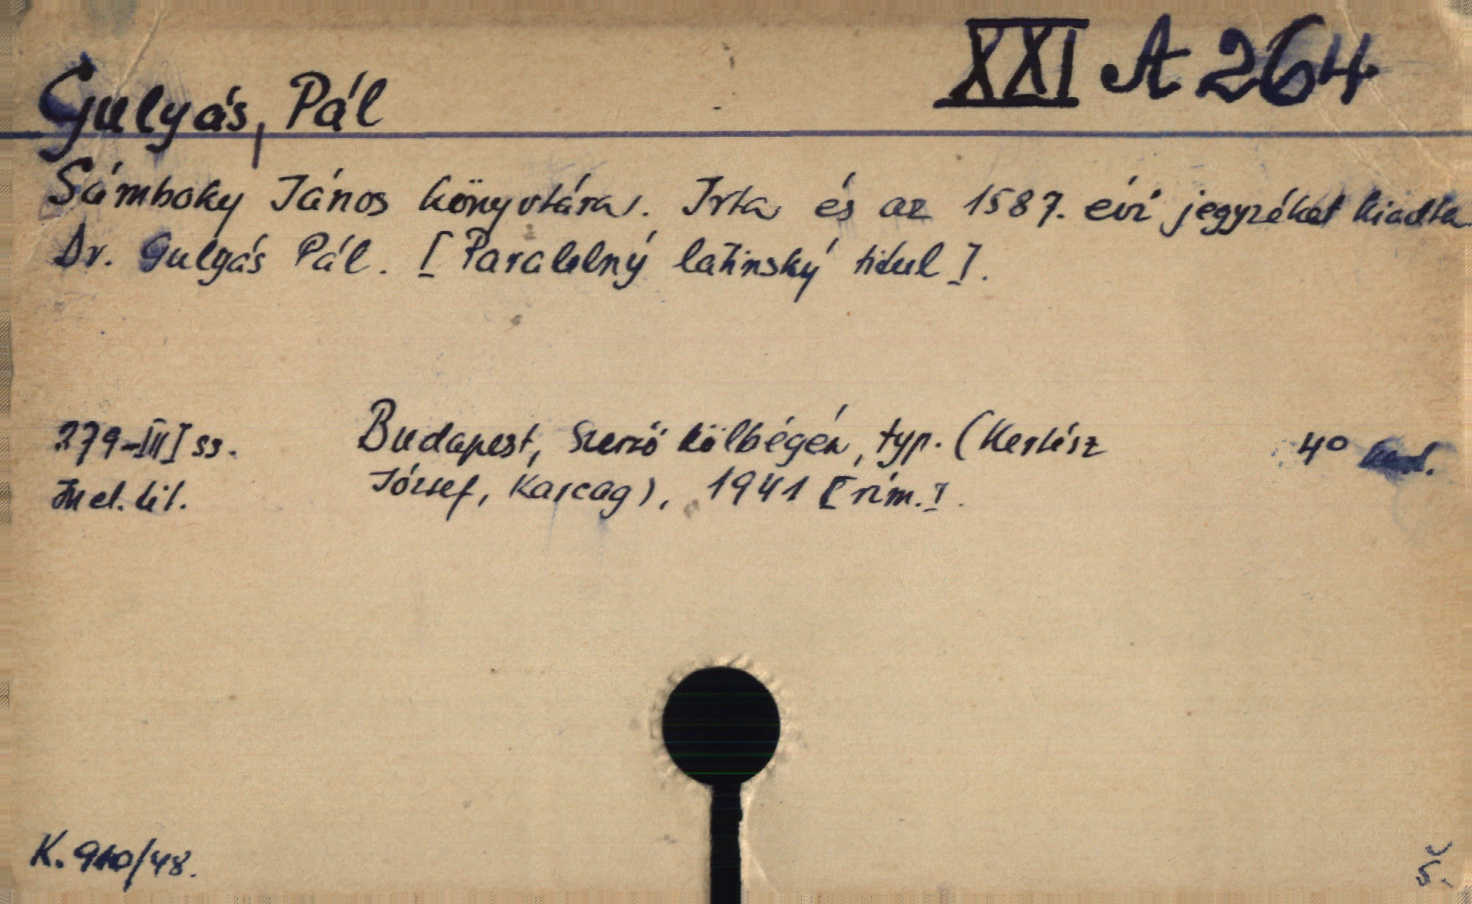 XXI A 264
Gulyás, Pál
Sámboky János könyvtára. Irta és az 1587. évi jegyzéket kiadta
Dr. Gulyás Pál. [Paralelný latinský titul].
279-III] ss. Budapest, Szerző költségén, typ. (Kertész 4°
Incl. tit. József, Karcag), 1941 [rím.].
K. 910/48. Š.